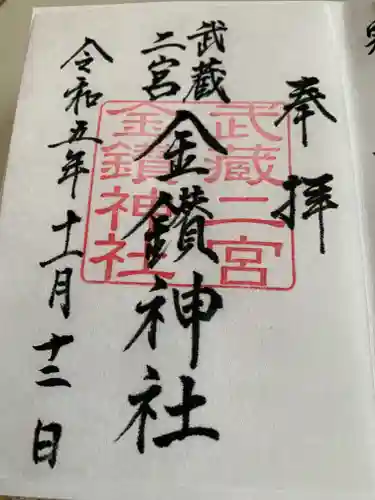 奉拝
武蔵
二宮
金鑚神社
武蔵二宮
金鑚神社
令和五年十一月十二日